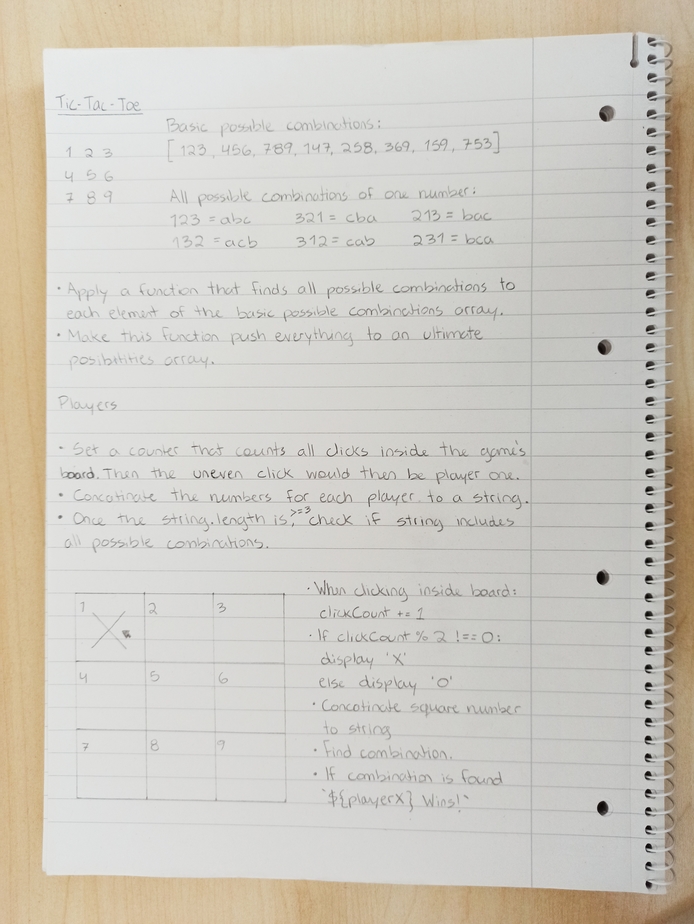 Tic-Tac-Toe
Basic possible combinations:
1 2 3 [123, 456, 789, 147, 258, 369, 159, 753]
4 5 6
7 8 9 All possible combinations of one number:
123 = abc 321 = cba 213 = bac
132 = acb 312 = cab 231 = bca
• Apply a function that finds all possible combinations to
each element of the basic possible combinations array.
• Make this function push everything to an ultimate
posibilities array.
Players
• Set a counter that counts all clicks inside the game's
board. Then the uneven click would then be player one.
• Concatinate the numbers for each player to a string.
• Once the string.length is, >=3 check if string includes
all possible combinations.
1 2 3
4 5 6
7 8 9
• When clicking inside board:
clickCount += 1
• If clickCount % 2 !== 0:
display 'X'
else display 'O'
• Concatinate square number
to string
• Find combination.
• If combination is found
`${playerX} Wins!`